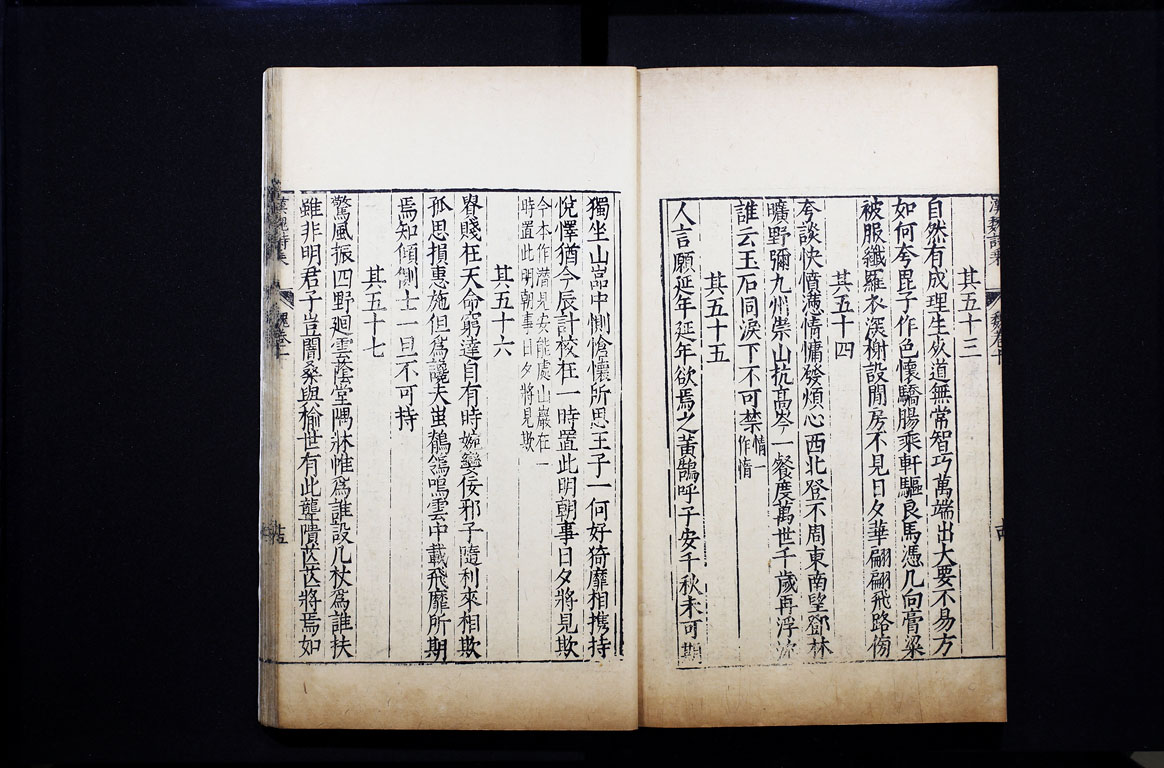 其五十三
自然有成理生死道無常智巧萬端出大要不易方
如何夸毘子作色懷驕腸乘軒驅良馬憑几向膏粱
被服纖羅衣深榭設閒房不見日夕華翩翩飛路傍
其五十四
夸談快憤懣情慵發煩心西北登不周東南望鄧林
曠野彌九州崇山抗高岑一餐度萬世千歲再浮沉
誰云玉石同淚下不可禁情一作惰
其五十五
人言願延年延年欲焉之黃鵠呼子安千秋未可期
獨坐山嵓中惻愴懷所思王子一何好猗靡相攜持
悅懌猶今辰計校在一時置此明朝事日夕將見欺
今本作潜見安能處山巖在一
時置此明朝事日夕將見欺
其五十六
貴賤在天命窮達自有時婉孌佞邪子隨利來相欺
孤思損惠施但爲讒夫蚩鶺鴒鳴雲中載飛靡所期
焉知傾側士一旦不可持
其五十七
驚風振四野迴雲蔭堂隅牀帷爲誰設几杖爲誰扶
雖非明君子豈闇桑與榆世有此聾聵芒芒將焉如
漢魏詩乘
魏卷十